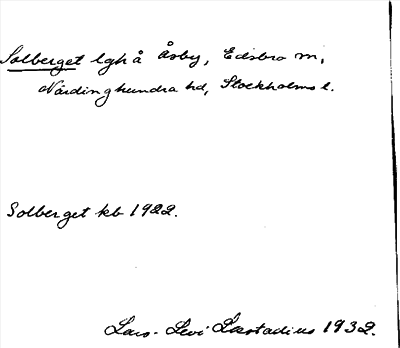 Solberget lgh å Åsby, Edsbro m,
Närdinghundra hd, Stockholms l.
Solberget kb 1922.
Lars-Levi Læstadius 1932.